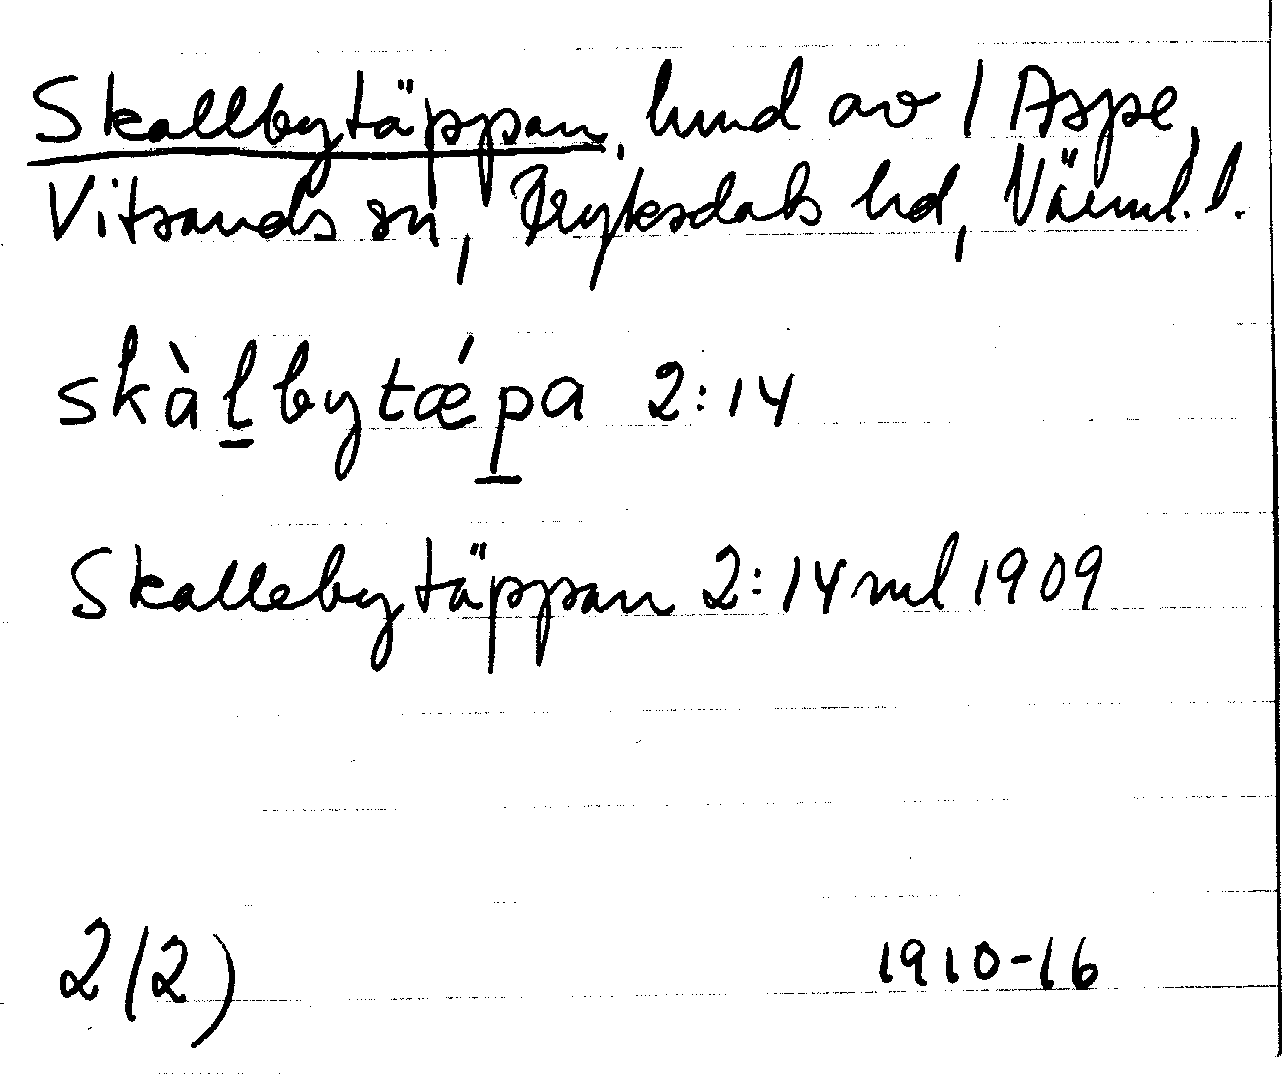 Skallbytäppan, hmd av 1 Aspe,
Vitsands sn, Fryksdals hd, Värml. l.
skàḻbytǽp̱a 2:14
Skallebytäppan 2:14 ml 1909
2(2)
1910-16